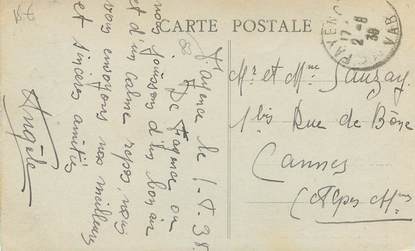 CARTE POSTALE
Fayence le 1.8.38
De Fayence ou
nous jouissons d'un bon air
et d'un calme repos, nous
vous envoyons nos meilleures
et sincères amitiés
Angèle
FAYENCE
17
2-8
38
VAR
Mr et Mme Sauzay
1 bis Rue de Bône
Cannes
(Alpes Mmes